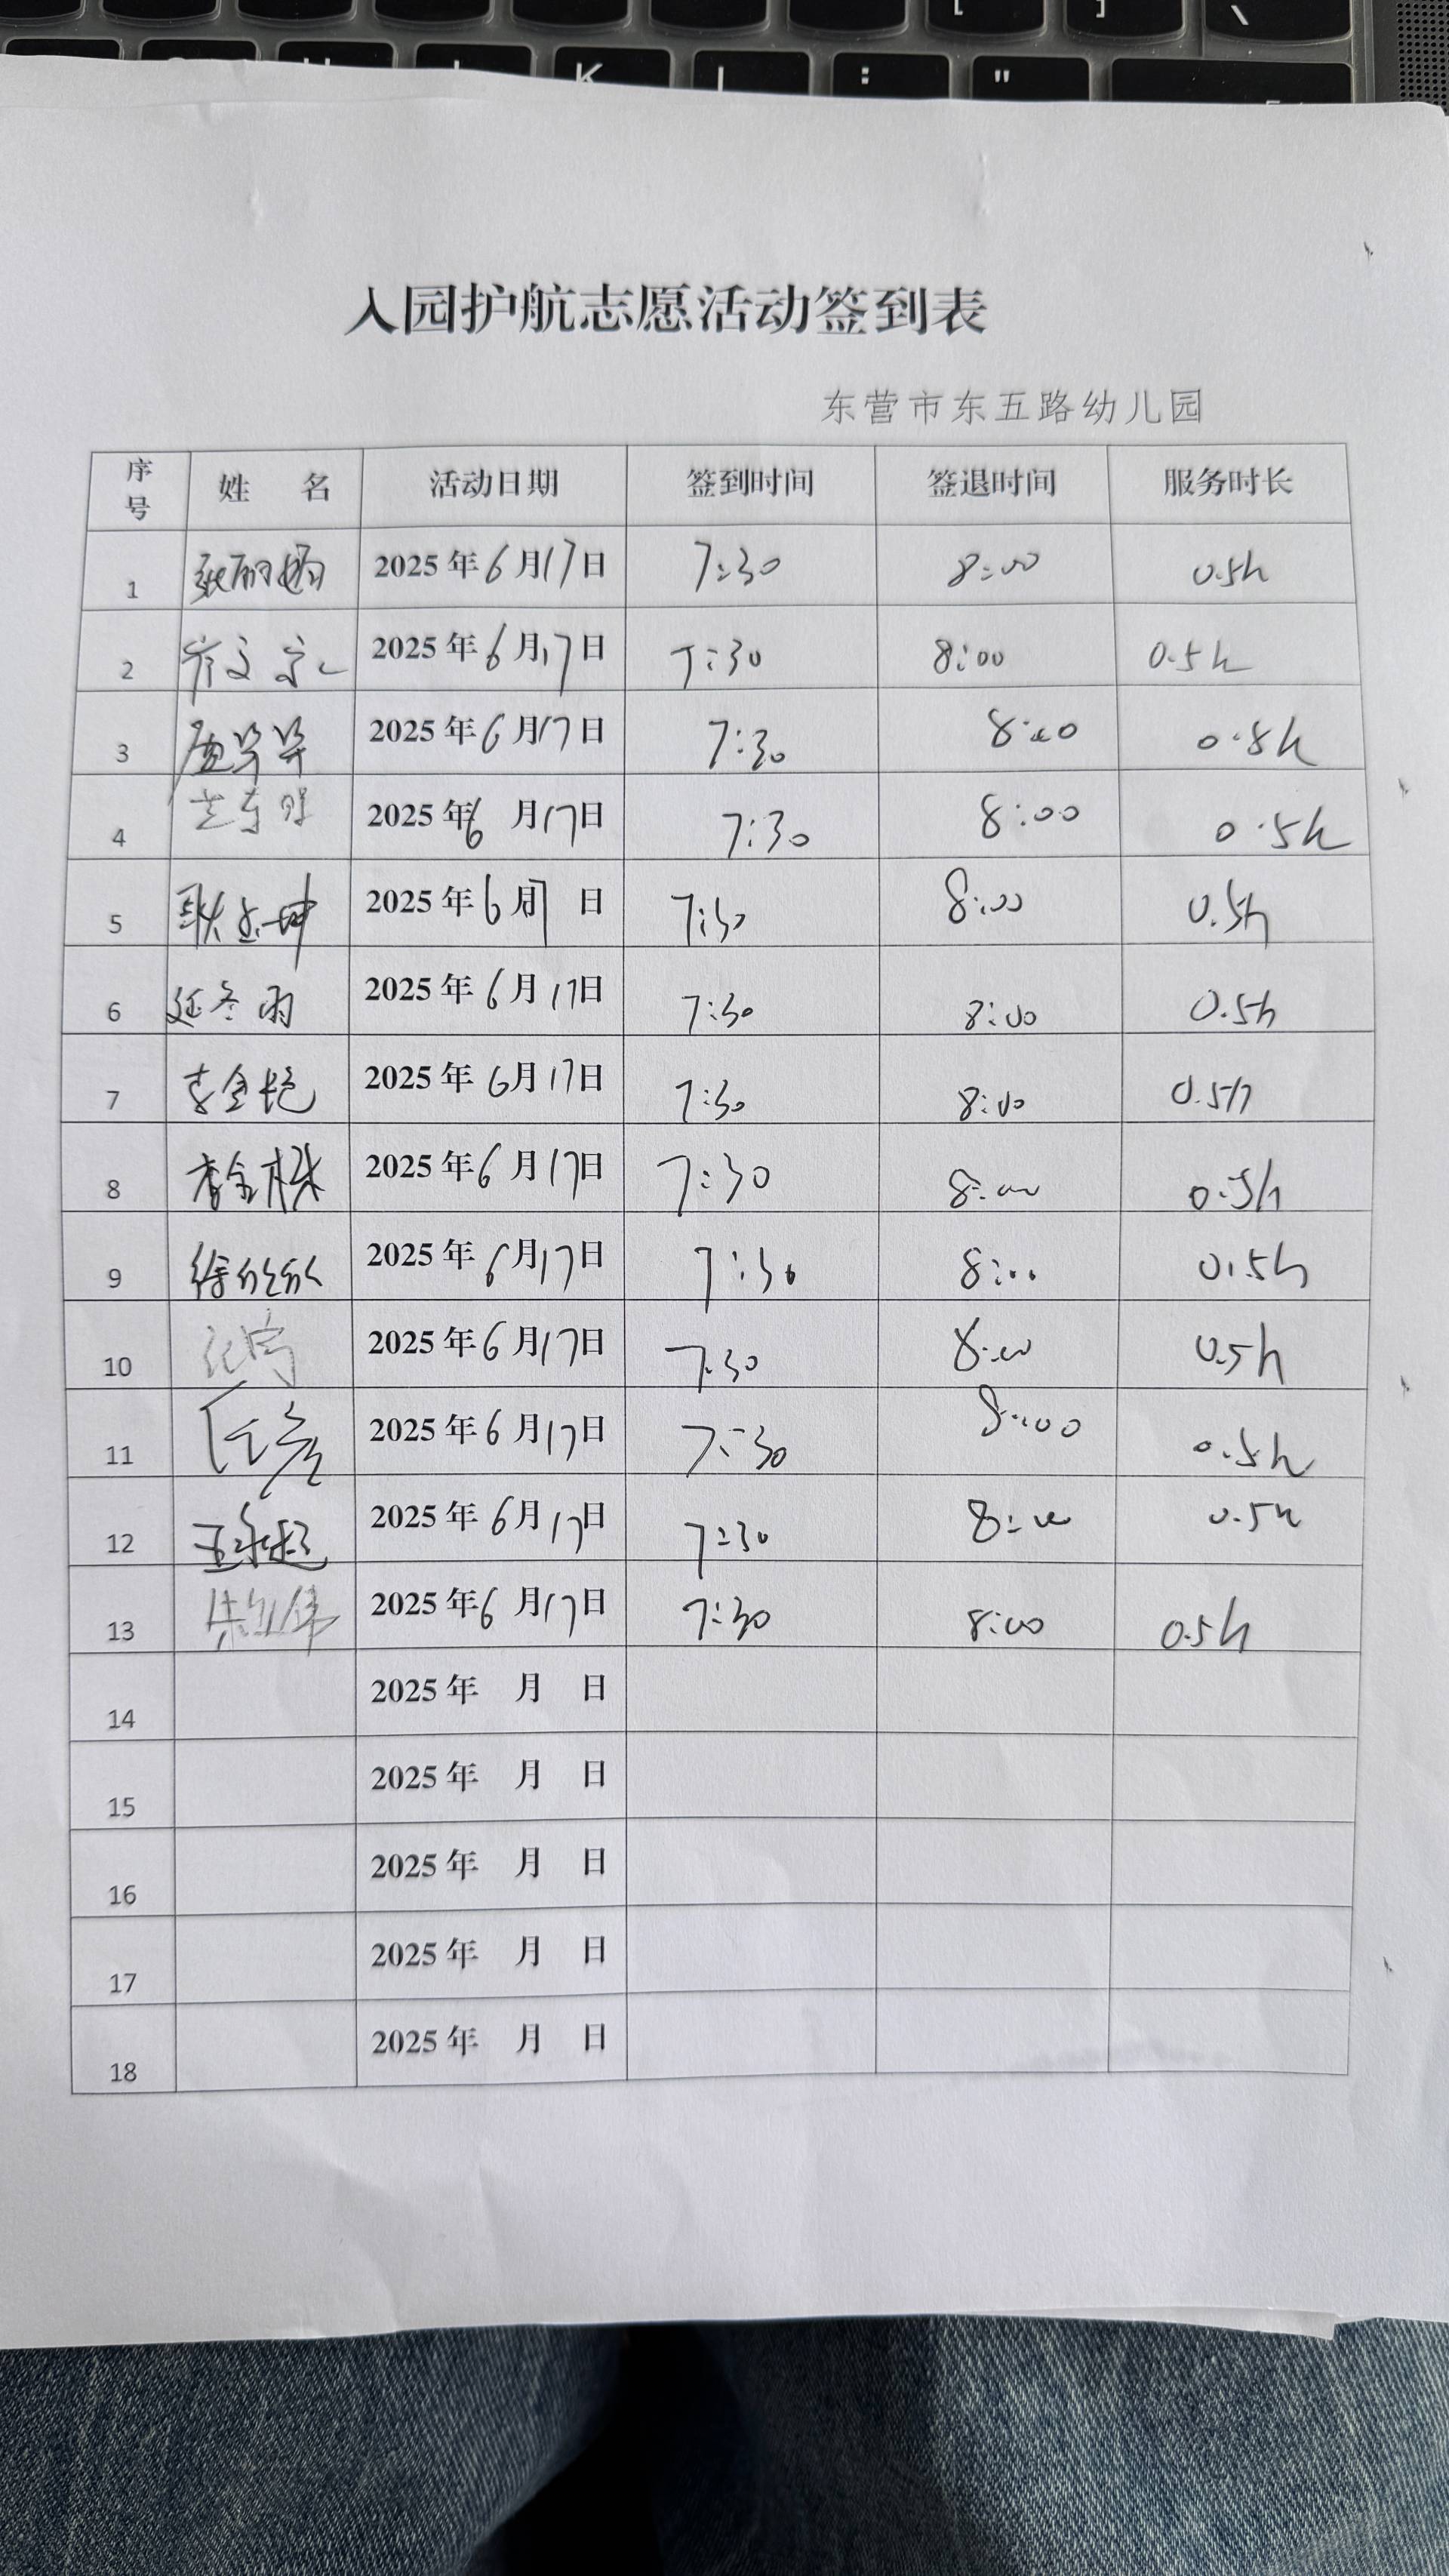 [
]
\
K
L
:
"
入园护航志愿活动签到表
东营市东五路幼儿园
序号 姓 名 活动日期 签到时间 签退时间 服务时长
1 2025年6月17日 7:30 8:00 0.5h
2 2025年6月17日 7:30 8:00 0.5h
3 2025年6月17日 7:30 8:00 0.5h
4 2025年6月17日 7:30 8:00 0.5h
5 2025年6月 日 7:30 8:00 0.5h
6 延冬雨 2025年6月17日 7:30 8:00 0.5h
7 2025年6月17日 7:30 8:00 0.5h
8 李金栋 2025年6月17日 7:30 8:00 0.5h
9 徐欣欣 2025年6月17日 7:30 8:00 0.5h
10 2025年6月17日 7:30 8:00 0.5h
11 2025年6月17日 7:30 8:00 0.5h
12 2025年6月17日 7:30 8:00 0.5h
13 2025年6月17日 7:30 8:00 0.5h
14 2025年 月 日
15 2025年 月 日
16 2025年 月 日
17 2025年 月 日
18 2025年 月 日